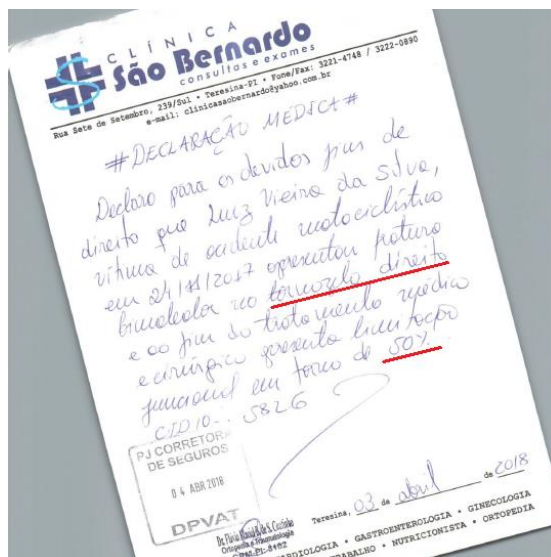 CLÍNICA
São Bernardo
consultas e exames
Rua Sete de Setembro, 239/Sul • Teresina-PI • Fone/Fax: 3221-4748 / 3222-0890
e-mail: clinicassobernardo@yahoo.com.br
# DECLARAÇÃO MÉDICA #
Declaro para os devidos fins de
direito que Luiz Vieira da Silva,
vítima de acidente motociclístico
em 24/11/2017 apresentou fratura
bimaleolar no tornozelo direito
e ao fim do tratamento médico
e cirúrgico apresenta limitação
funcional em torno de 50%.
CID 10 - S826
PJ CORRETORA
DE SEGUROS
04 ABR 2018
DPVAT
Ortopedia e Traumatologia
Teresina, 03 de abril de 2018
CARDIOLOGIA • GASTROENTEROLOGIA • GINECOLOGIA
TRABALHO • NUTRICIONISTA • ORTOPEDIA